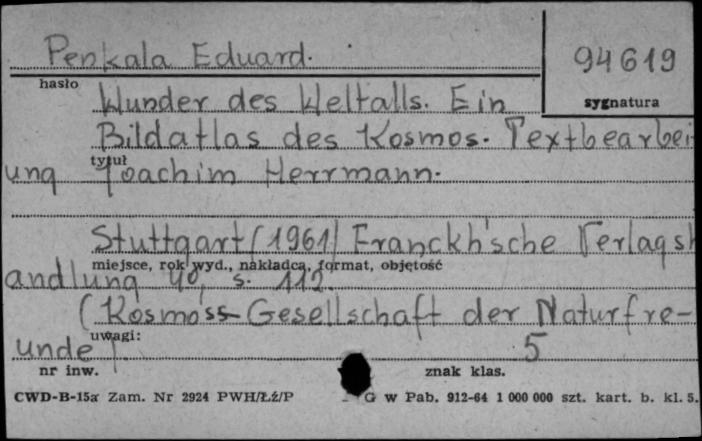 Penkala Eduard.
94619
hasło
sygnatura
Wunder des Weltalls. Ein
Bildatlas des Kosmos. Textbearbei
tytuł
ung Joachim Herrmann.
Stuttgart (1961) Franckh'sche Verlagsh
miejsce, rok wyd., nakładca, format, objętość
andlung 4o, s. 112.
(Kosmoss-Gesellschaft der Naturfre-
uwagi:
unde). 5
nr inw. znak klas.
CWD-B-15a Zam. Nr 2924 PWH/Łź/P G w Pab. 912-64 1 000 000 szt. kart. b. kl. 5.